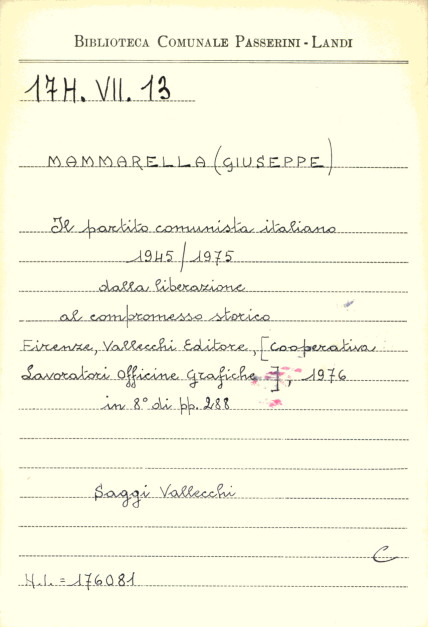 BIBLIOTECA COMUNALE PASSERINI - LANDI
17H. VII. 13
MAMMARELLA (GIUSEPPE)
Il partito comunista italiano
1945/1975
dalla liberazione
al compromesso storico
Firenze, Vallecchi Editore, [Cooperativa
Lavoratori Officine Grafiche], 1976
in 8° di pp. 288
Saggi Vallecchi
C
N.I. = 176081